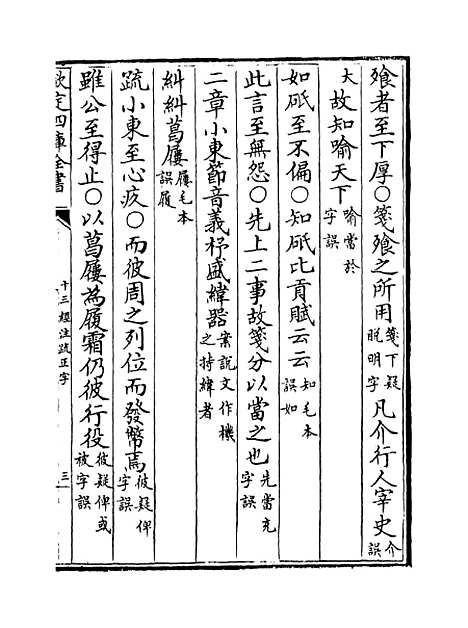 飱者至下厚○箋飱之所用箋下疑脱明字凡介行人宰史介誤
大故知喻天下喻當於字誤
如砥至不偏○知砥比貢賦云云知毛本誤如
此言至無怨○先上二事故箋分以當之也先當充字誤
二章小東節音義杼盛緯器案説文作機之持緯者
糾糾葛屨屨毛本誤履
疏小東至心疚○而彼周之列位而發幣焉彼疑俾字誤
雖公至得止○以葛屨為履霜仍彼行役彼疑俾或被字誤
欽定四庫全書
十三經注疏正字
三